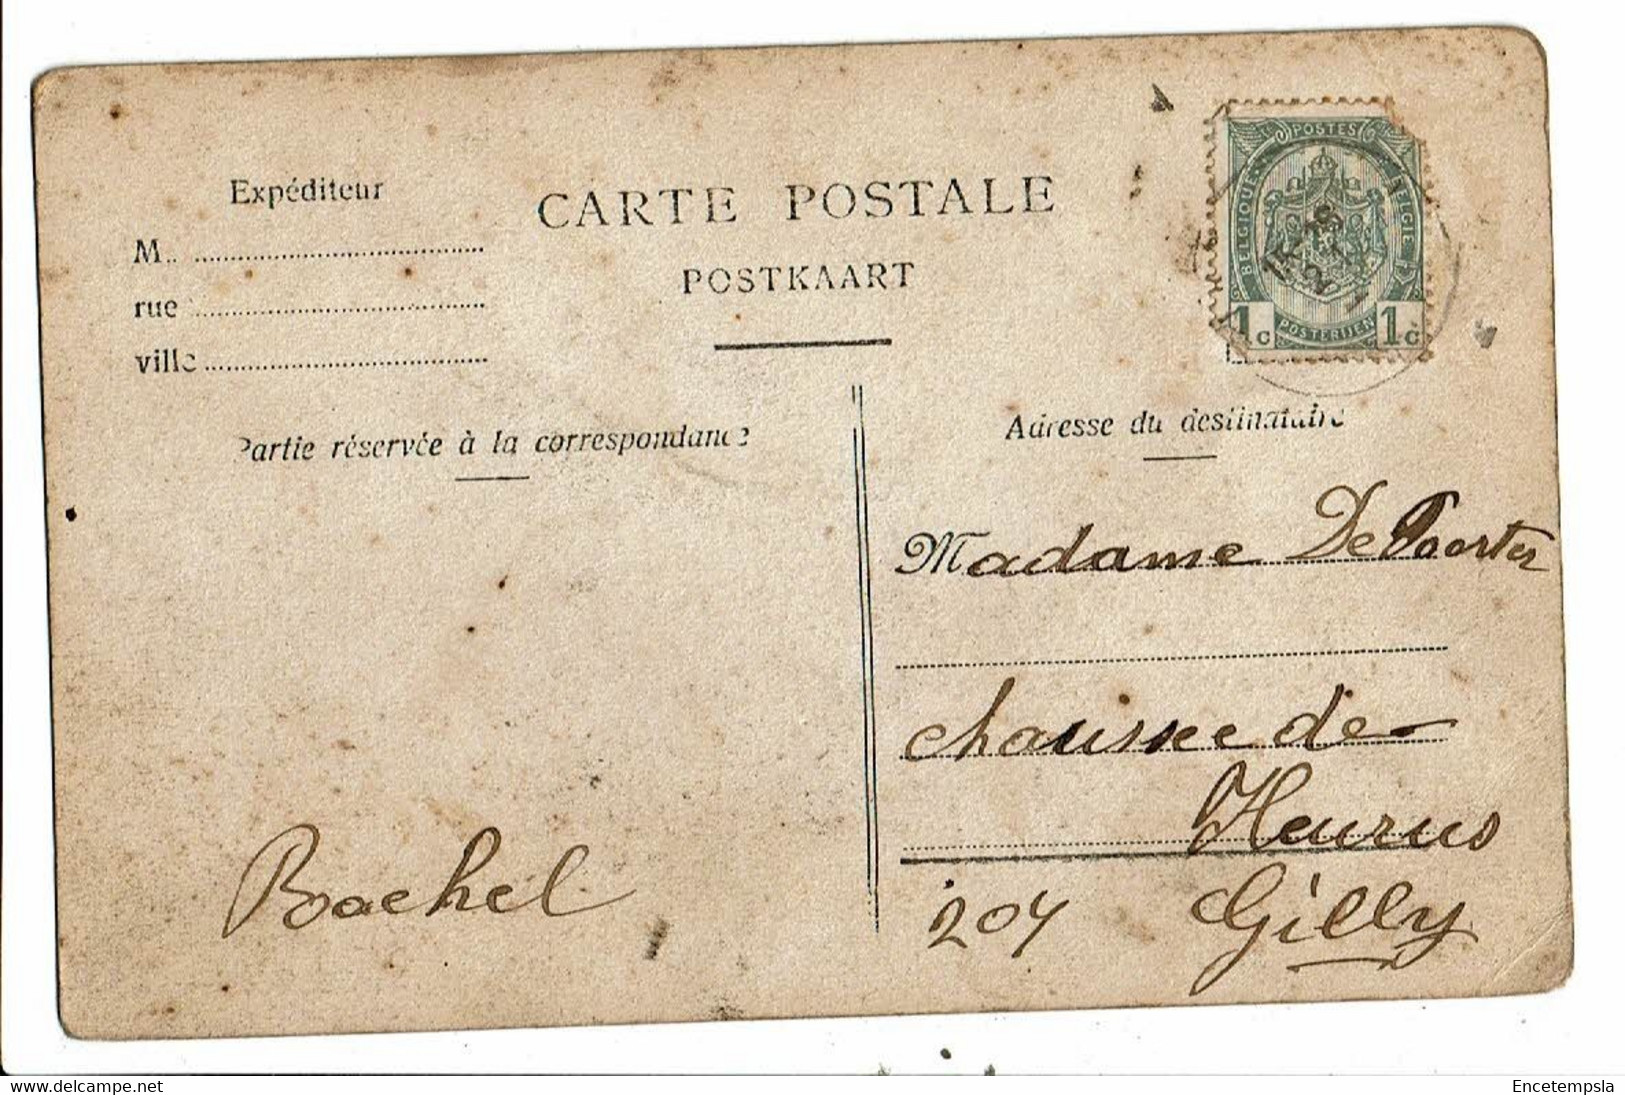 Expéditeur
M.
rue
ville
CARTE POSTALE
POSTKAART
POSTES
BELGIQUE
BELGIE
1c POSTERIJEN 1c
Partie réservée à la correspondance
Adresse du destinataire
Madame De Poorter
chaussee de
Fleurus
204 Gilly
Rachel
05/03/2024
Encetempsla